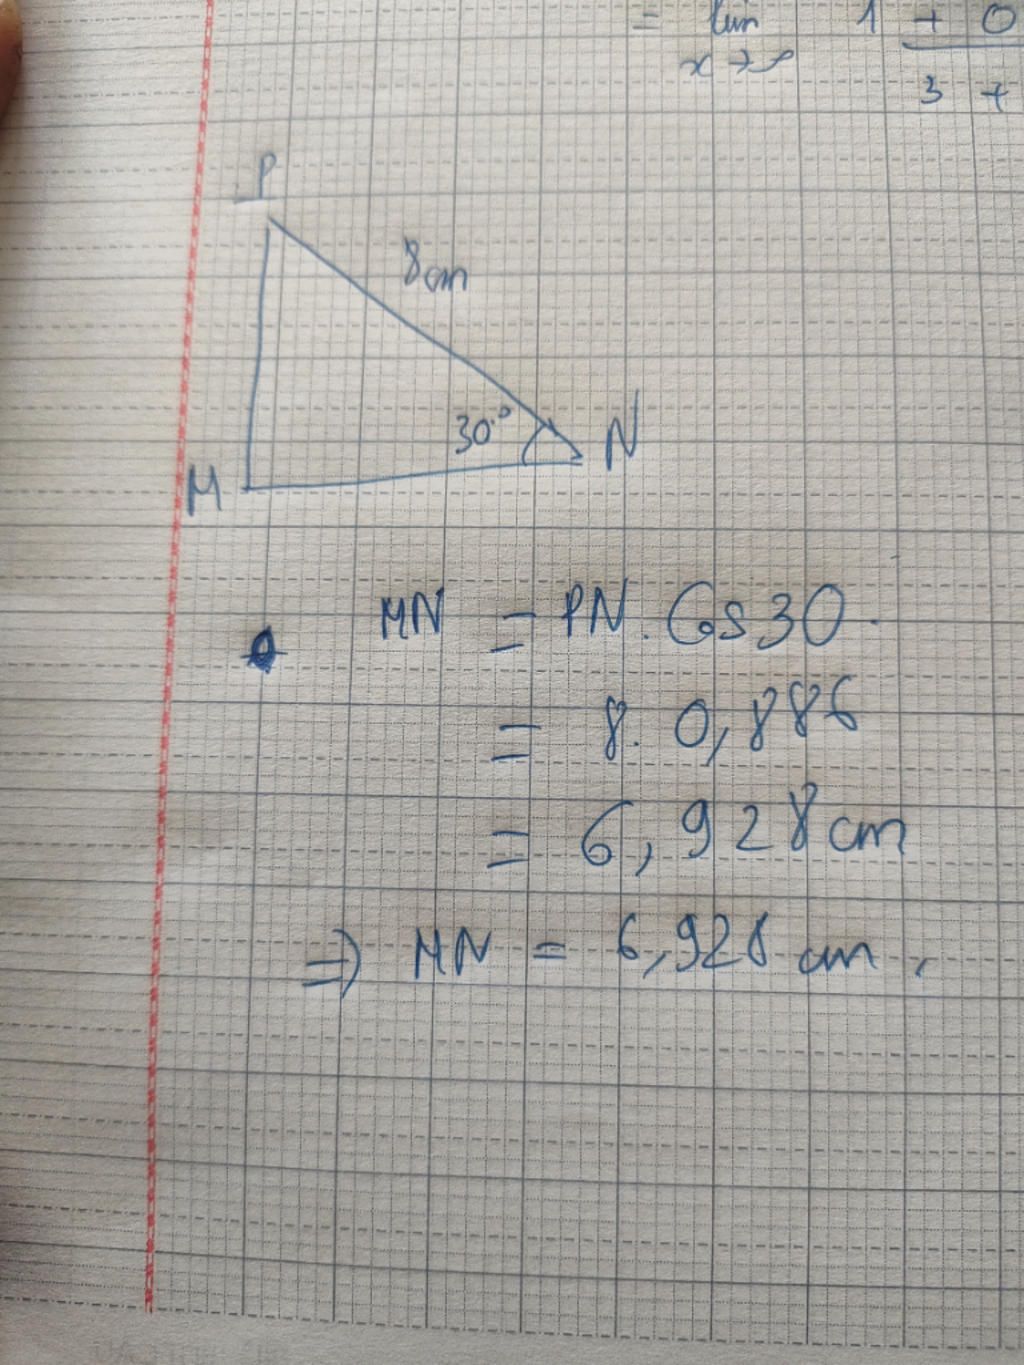 = lim 1 + 0
x → ∞ 3 +
P
8cm
30°
N
M
MN = PN. Cos30.
= 8. 0,886
= 6,928cm
⇒ MN = 6,928 cm,